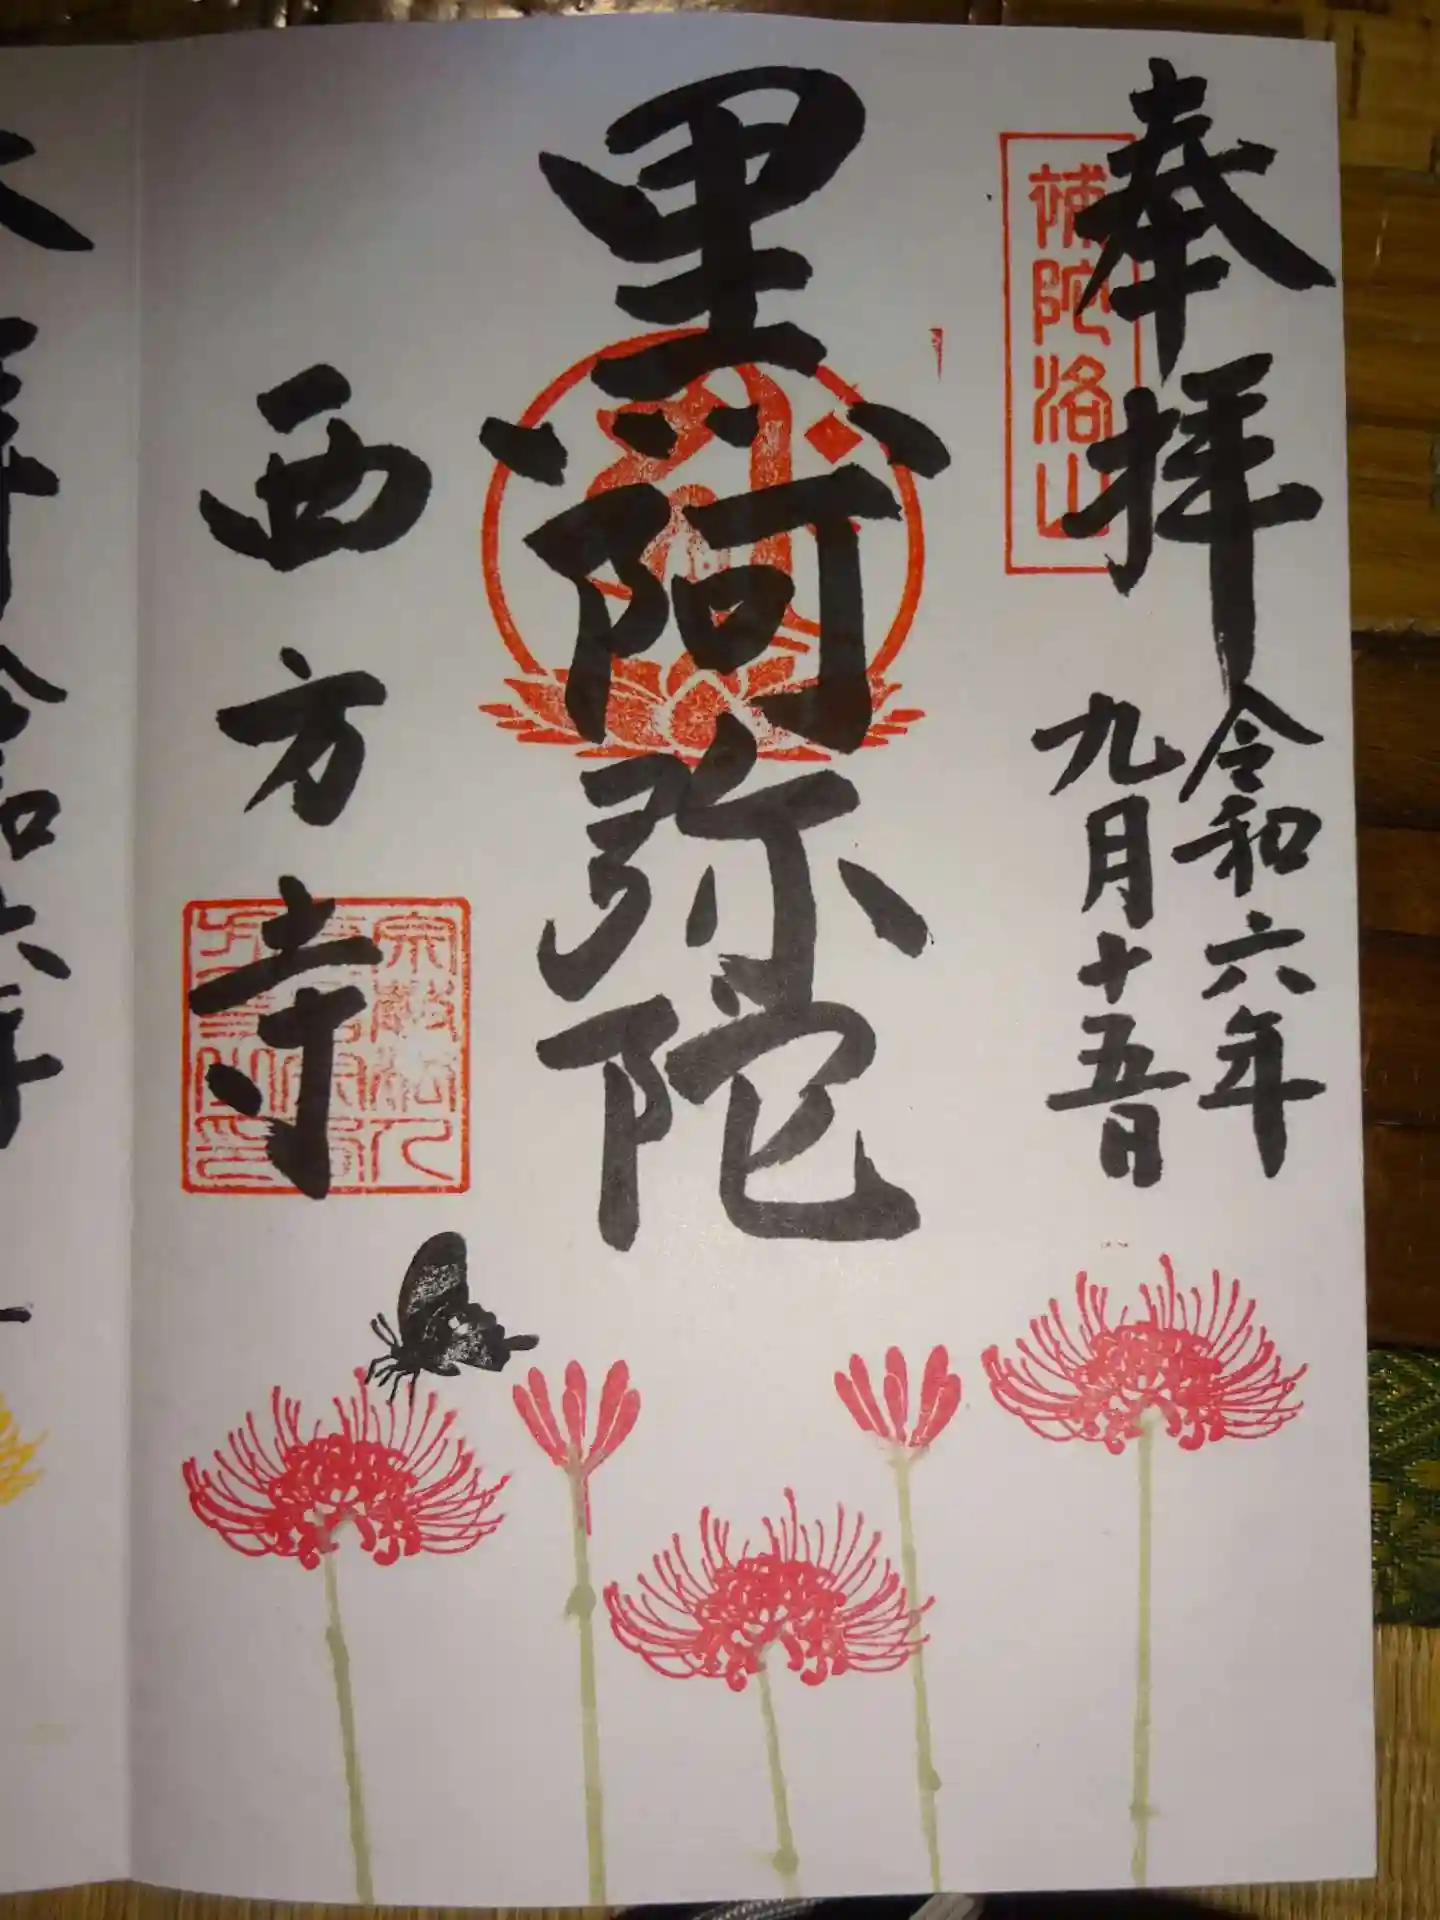 奉拝
補陀洛山
令和六年
九月十五日
黒阿弥陀
西方寺